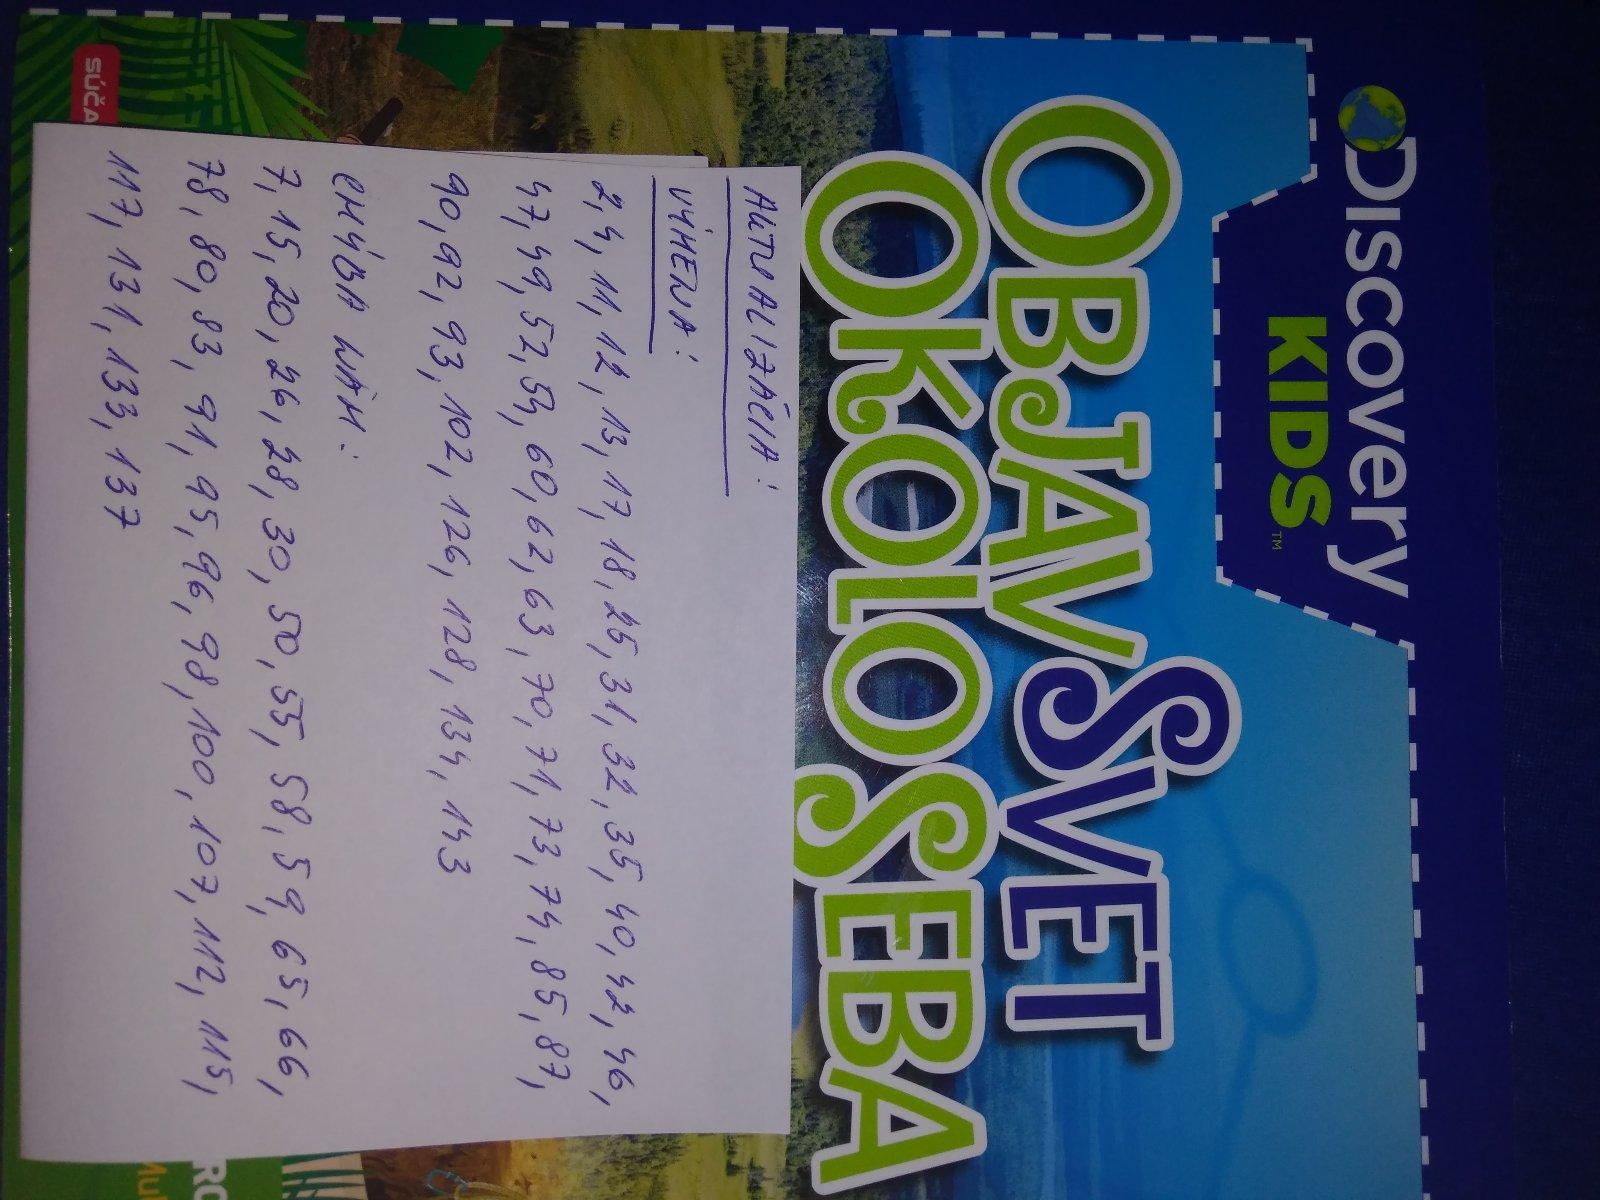 Discovery
KIDS™
OBJAV SVET
OKOLO SEBA
AKTUALIZÁCIA:
VÝMENA:
2, 4, 11, 12, 13, 17, 18, 25, 31, 32, 35, 40, 42, 46,
47, 49, 52, 54, 60, 62, 63, 70, 71, 73, 74, 85, 87,
90, 92, 93, 102, 126, 128, 134, 143
CHÝBA NÁM:
7, 15, 20, 26, 28, 30, 50, 55, 58, 59, 65, 66,
78, 80, 83, 91, 95, 96, 98, 100, 107, 112, 115,
117, 131, 133, 137
SÚČA